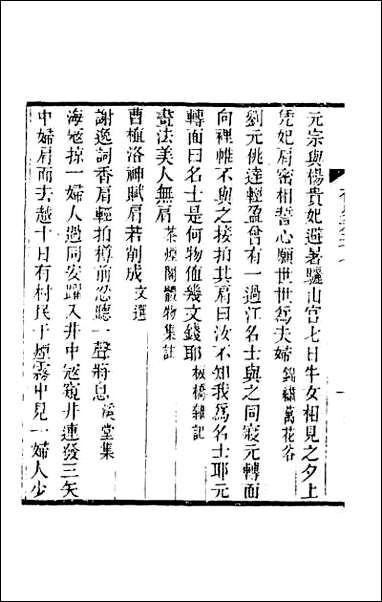 元宗與楊貴妃避著驪山宫七日牛女相見之夕上
凭妃肩密相誓心願世世爲夫婦 錦繡萬花谷
劉元佻達輕盈曾有一過江名士與之同寢元轉面
向裡帷不與之接拍其肩曰汝不知我爲名士耶元
轉面曰名士是何物值幾文錢耶 板橋雜記
畫法美人無肩 茶煙閣體物集註
曹植洛神賦肩若削成 文選
謝逸詞香肩輕拍樽前忽聽一聲將息 溪堂集
海冦掠一婦人過同安躍入井中冦窺井連發三矢
中婦肩而去越十日有村民于煙霧中見一婦人少